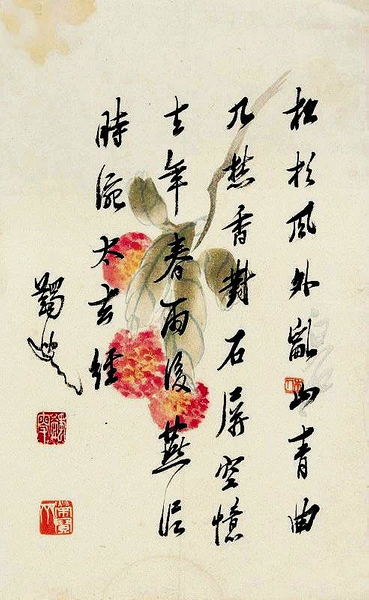 松杉風外亂山青曲
几焚香對石屏空憶
去年春雨後燕泥
時涴太玄經
蠲叟